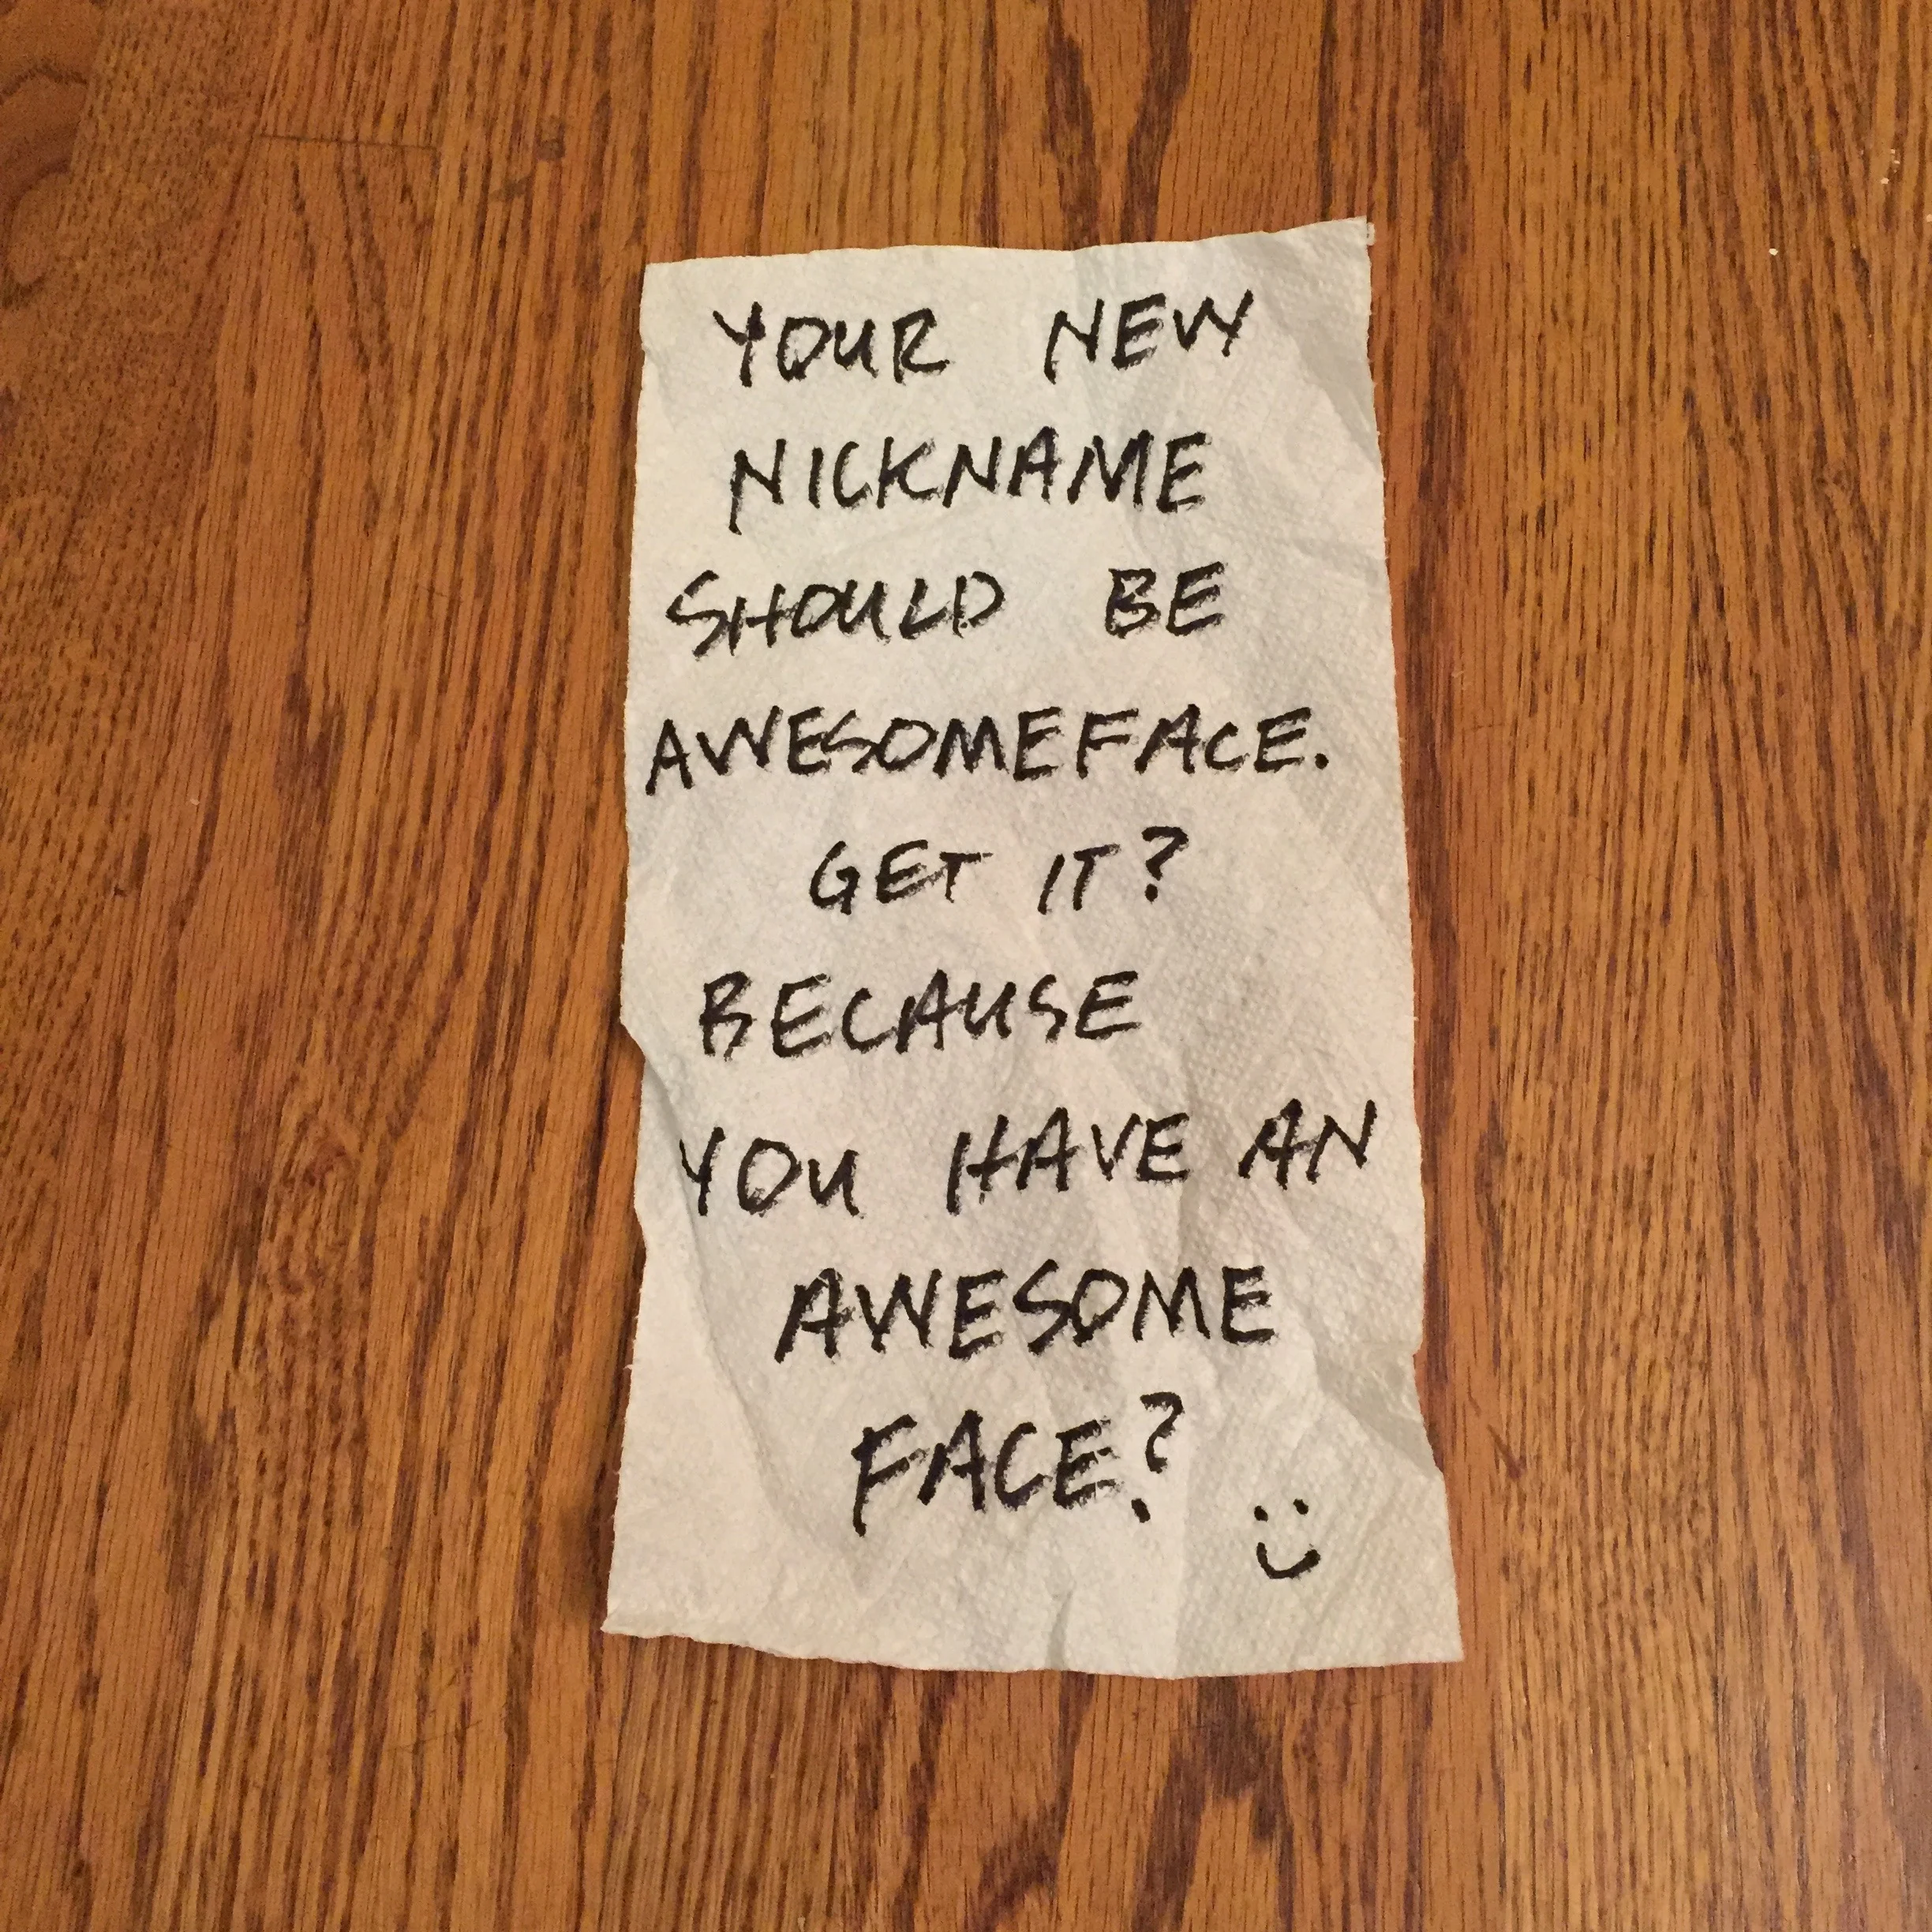 YOUR NEW
NICKNAME
SHOULD BE
AWESOMEFACE.
GET IT?
BECAUSE
YOU HAVE AN
AWESOME
FACE?